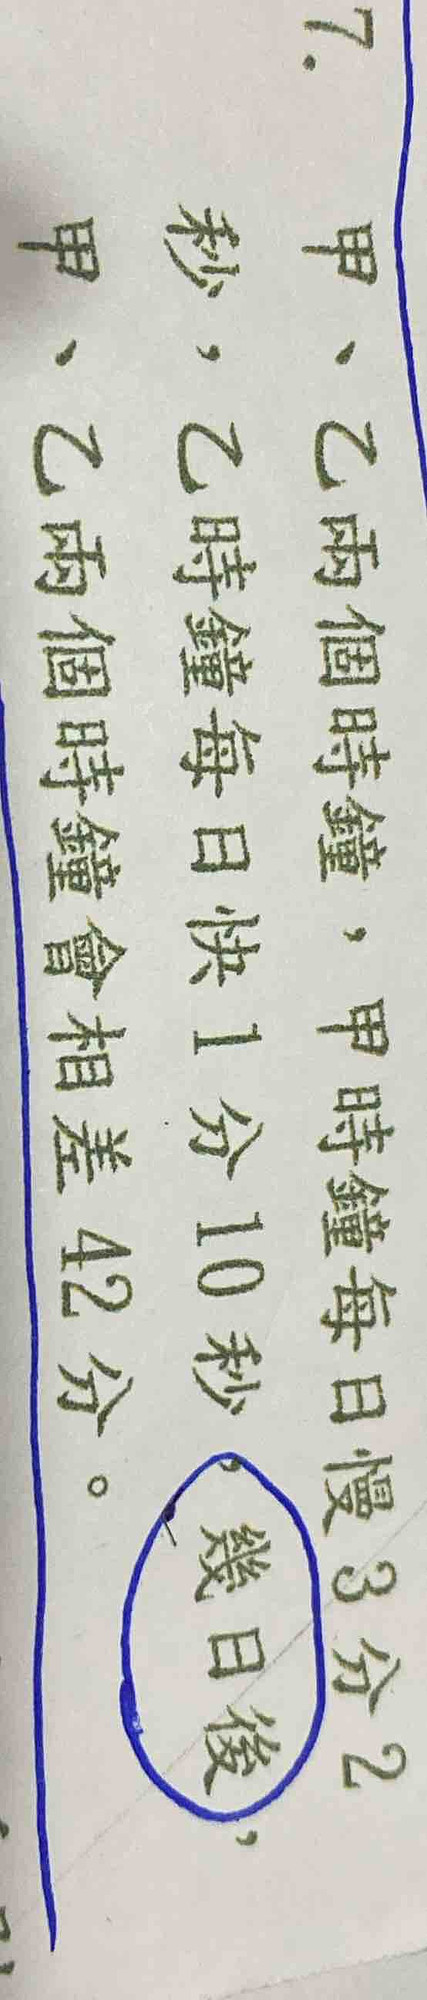 7. 甲、乙兩個時鐘，甲時鐘每日慢3分2
秒，乙時鐘每日快1分10秒，幾日後，
甲、乙兩個時鐘會相差42分。